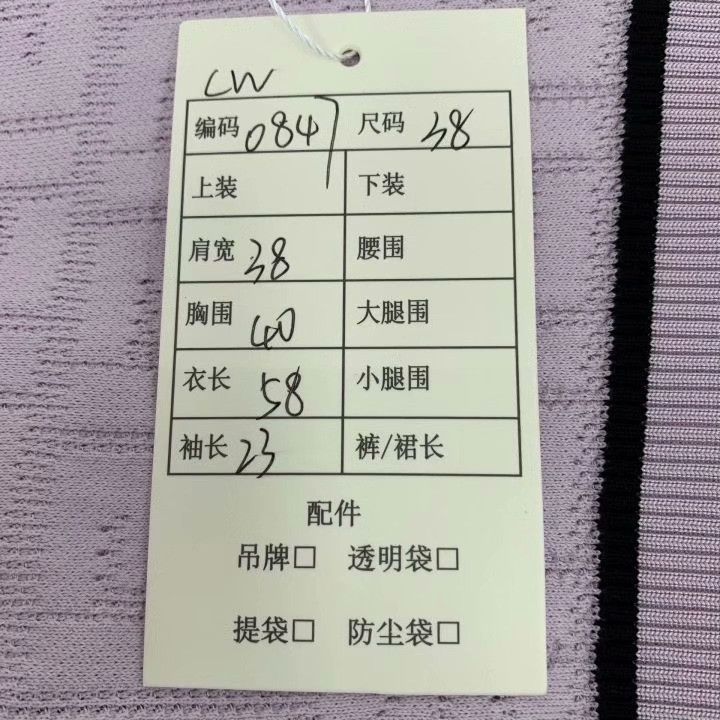 LW
编码 0847 尺码 38
上装 下装
肩宽 38 腰围
胸围 40 大腿围
衣长 58 小腿围
袖长 23 裤/裙长
配件
吊牌□ 透明袋□
提袋□ 防尘袋□